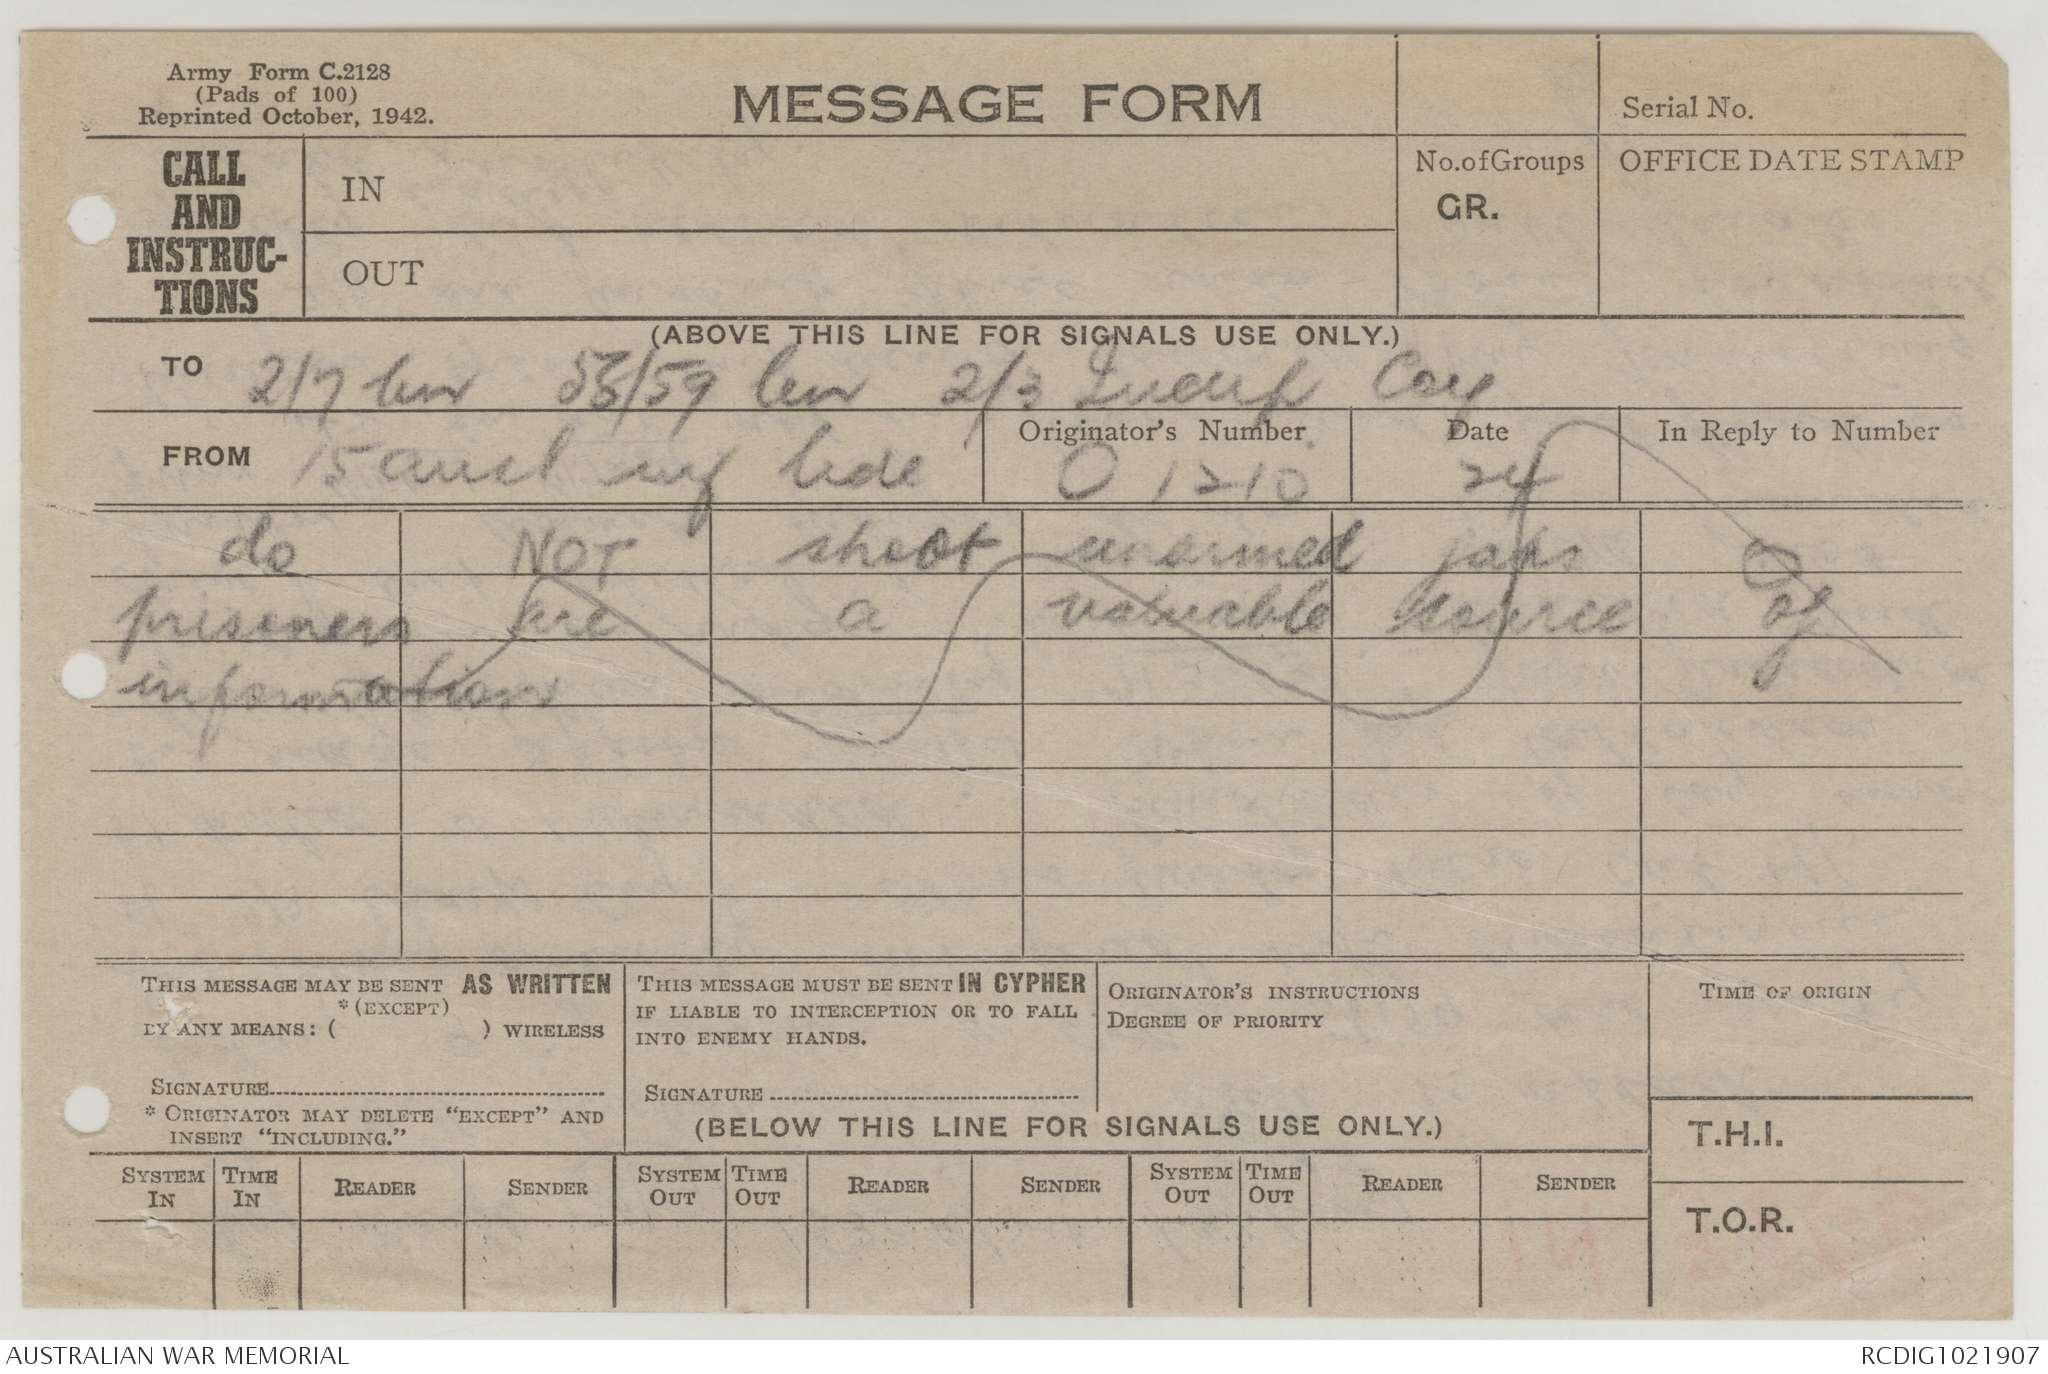 Army Form C.2128
(Pads of 100)
Reprinted October, 1942.
MESSAGE FORM
Serial No.
CALL
AND
INSTRUC-
TIONS
IN
OUT
No.ofGroups
GR.
OFFICE DATE STAMP
(ABOVE THIS LINE FOR SIGNALS USE ONLY.)
TO 2/7 bn 58/59 bn 2/3 Indep Coy
FROM 15 aust inf bde
Originator's Number
O 1210
Date
24
In Reply to Number
do NOT shoot unarmed japs O
prisoners are a valuable source of
information
THIS MESSAGE MAY BE SENT AS WRITTEN
*(EXCEPT)
BY ANY MEANS: ( ) WIRELESS
SIGNATURE
* ORIGINATOR MAY DELETE "EXCEPT" AND
INSERT "INCLUDING."
THIS MESSAGE MUST BE SENT IN CYPHER
IF LIABLE TO INTERCEPTION OR TO FALL
INTO ENEMY HANDS.
SIGNATURE
ORIGINATOR'S INSTRUCTIONS
DEGREE OF PRIORITY
TIME OF ORIGIN
(BELOW THIS LINE FOR SIGNALS USE ONLY.)
T.H.I.
T.O.R.
SYSTEM IN TIME IN READER SENDER SYSTEM OUT TIME OUT READER SENDER SYSTEM OUT TIME OUT READER SENDER
AUSTRALIAN WAR MEMORIAL
RCDIG1021907